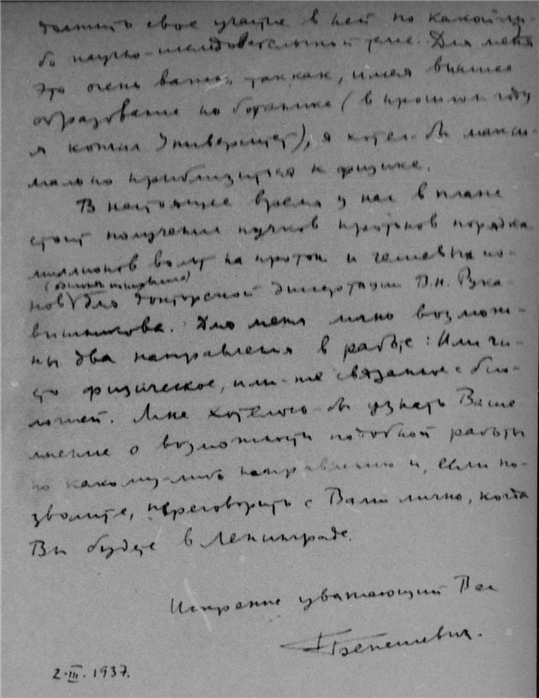 должить свое участие в ней по какой-ли-
бо научно-исследовательской теме. Для меня
это очень важно, так как, имея высшее
образование по ботанике (в прошлом году
я кончил Университет), я хотел-бы макси-
мально приблизиться к физике.
В настоящее время у нас в плане
стоит получение пучков протонов порядка
миллионов вольт на протон и гелиевых ио-
нов для докторской диссертации П.Н. Рука-
вишникова. Для меня лично возмож-
ны два направления в работе: Или чи-
сто физическое, или-же связанное с био-
логией. Мне хотелось-бы узнать Ваше
мнение о возможности подобной работы
по какому-либо направлению и, если по-
зволите, переговорить с Вами лично, когда
Вы будете в Ленинграде.
Искренне уважающий Вас
Бенешевич.
2·III·1937.